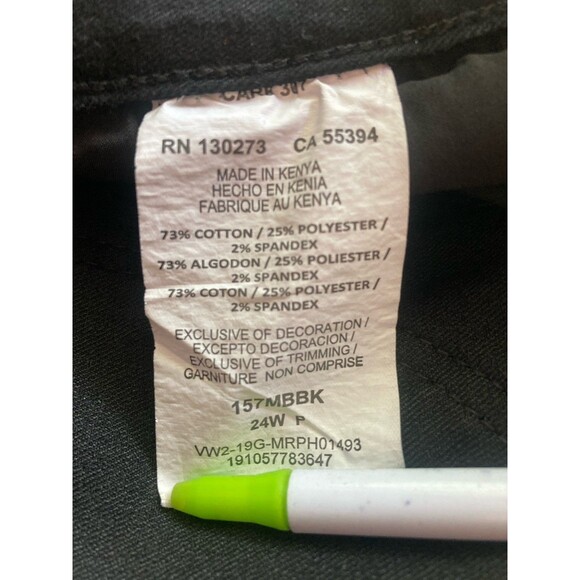 CARE 307
RN 130273 CA 55394
MADE IN KENYA
HECHO EN KENIA
FABRIQUE AU KENYA
73% COTTON / 25% POLYESTER /
2% SPANDEX
73% ALGODON / 25% POLIESTER /
2% SPANDEX
73% COTON / 25% POLYESTER /
2% SPANDEX
EXCLUSIVE OF DECORATION /
EXCEPTO DECORACION /
EXCLUSIVE OF TRIMMING /
GARNITURE NON COMPRISE
157MBBK
24W P
VW2-19G-MRPH01493
191057783647